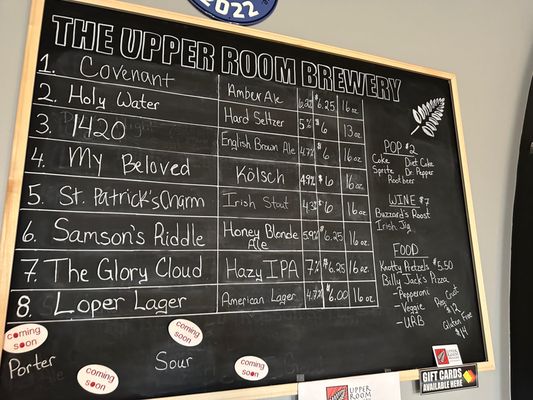 2022
THE UPPER ROOM BREWERY
1. Covenant Amber Ale $6.25 16 oz.
2. Holy Water Hard Seltzer 5% $6 13 oz.
3. 1420 English Brown Ale 4.7% $6 16 oz.
4. My Beloved Kölsch 4.9% $6 16 oz.
5. St. Patrick's Charm Irish Stout 4.3% $6 16 oz.
6. Samson's Riddle Honey Blonde Ale 5.9% $6.25 16 oz.
7. The Glory Cloud Hazy IPA 7% $6.25 16 oz.
8. Loper Lager American Lager 4.7% $6.00 16 oz
POP $2
Coke Diet Coke
Sprite Dr. Pepper
Rootbeer
WINE $7
Buzzard's Roost
Irish Jig
FOOD
Knotty Pretzels $5.50
Billy Jack's Pizza
- Pepperoni
- Veggie
- URB
Reg Crust $12
Gluten Free $14
coming soon
Porter
coming soon
coming soon
Sour
coming soon
GIFT CARDS
AVAILABLE HERE
UPPER
ROOM